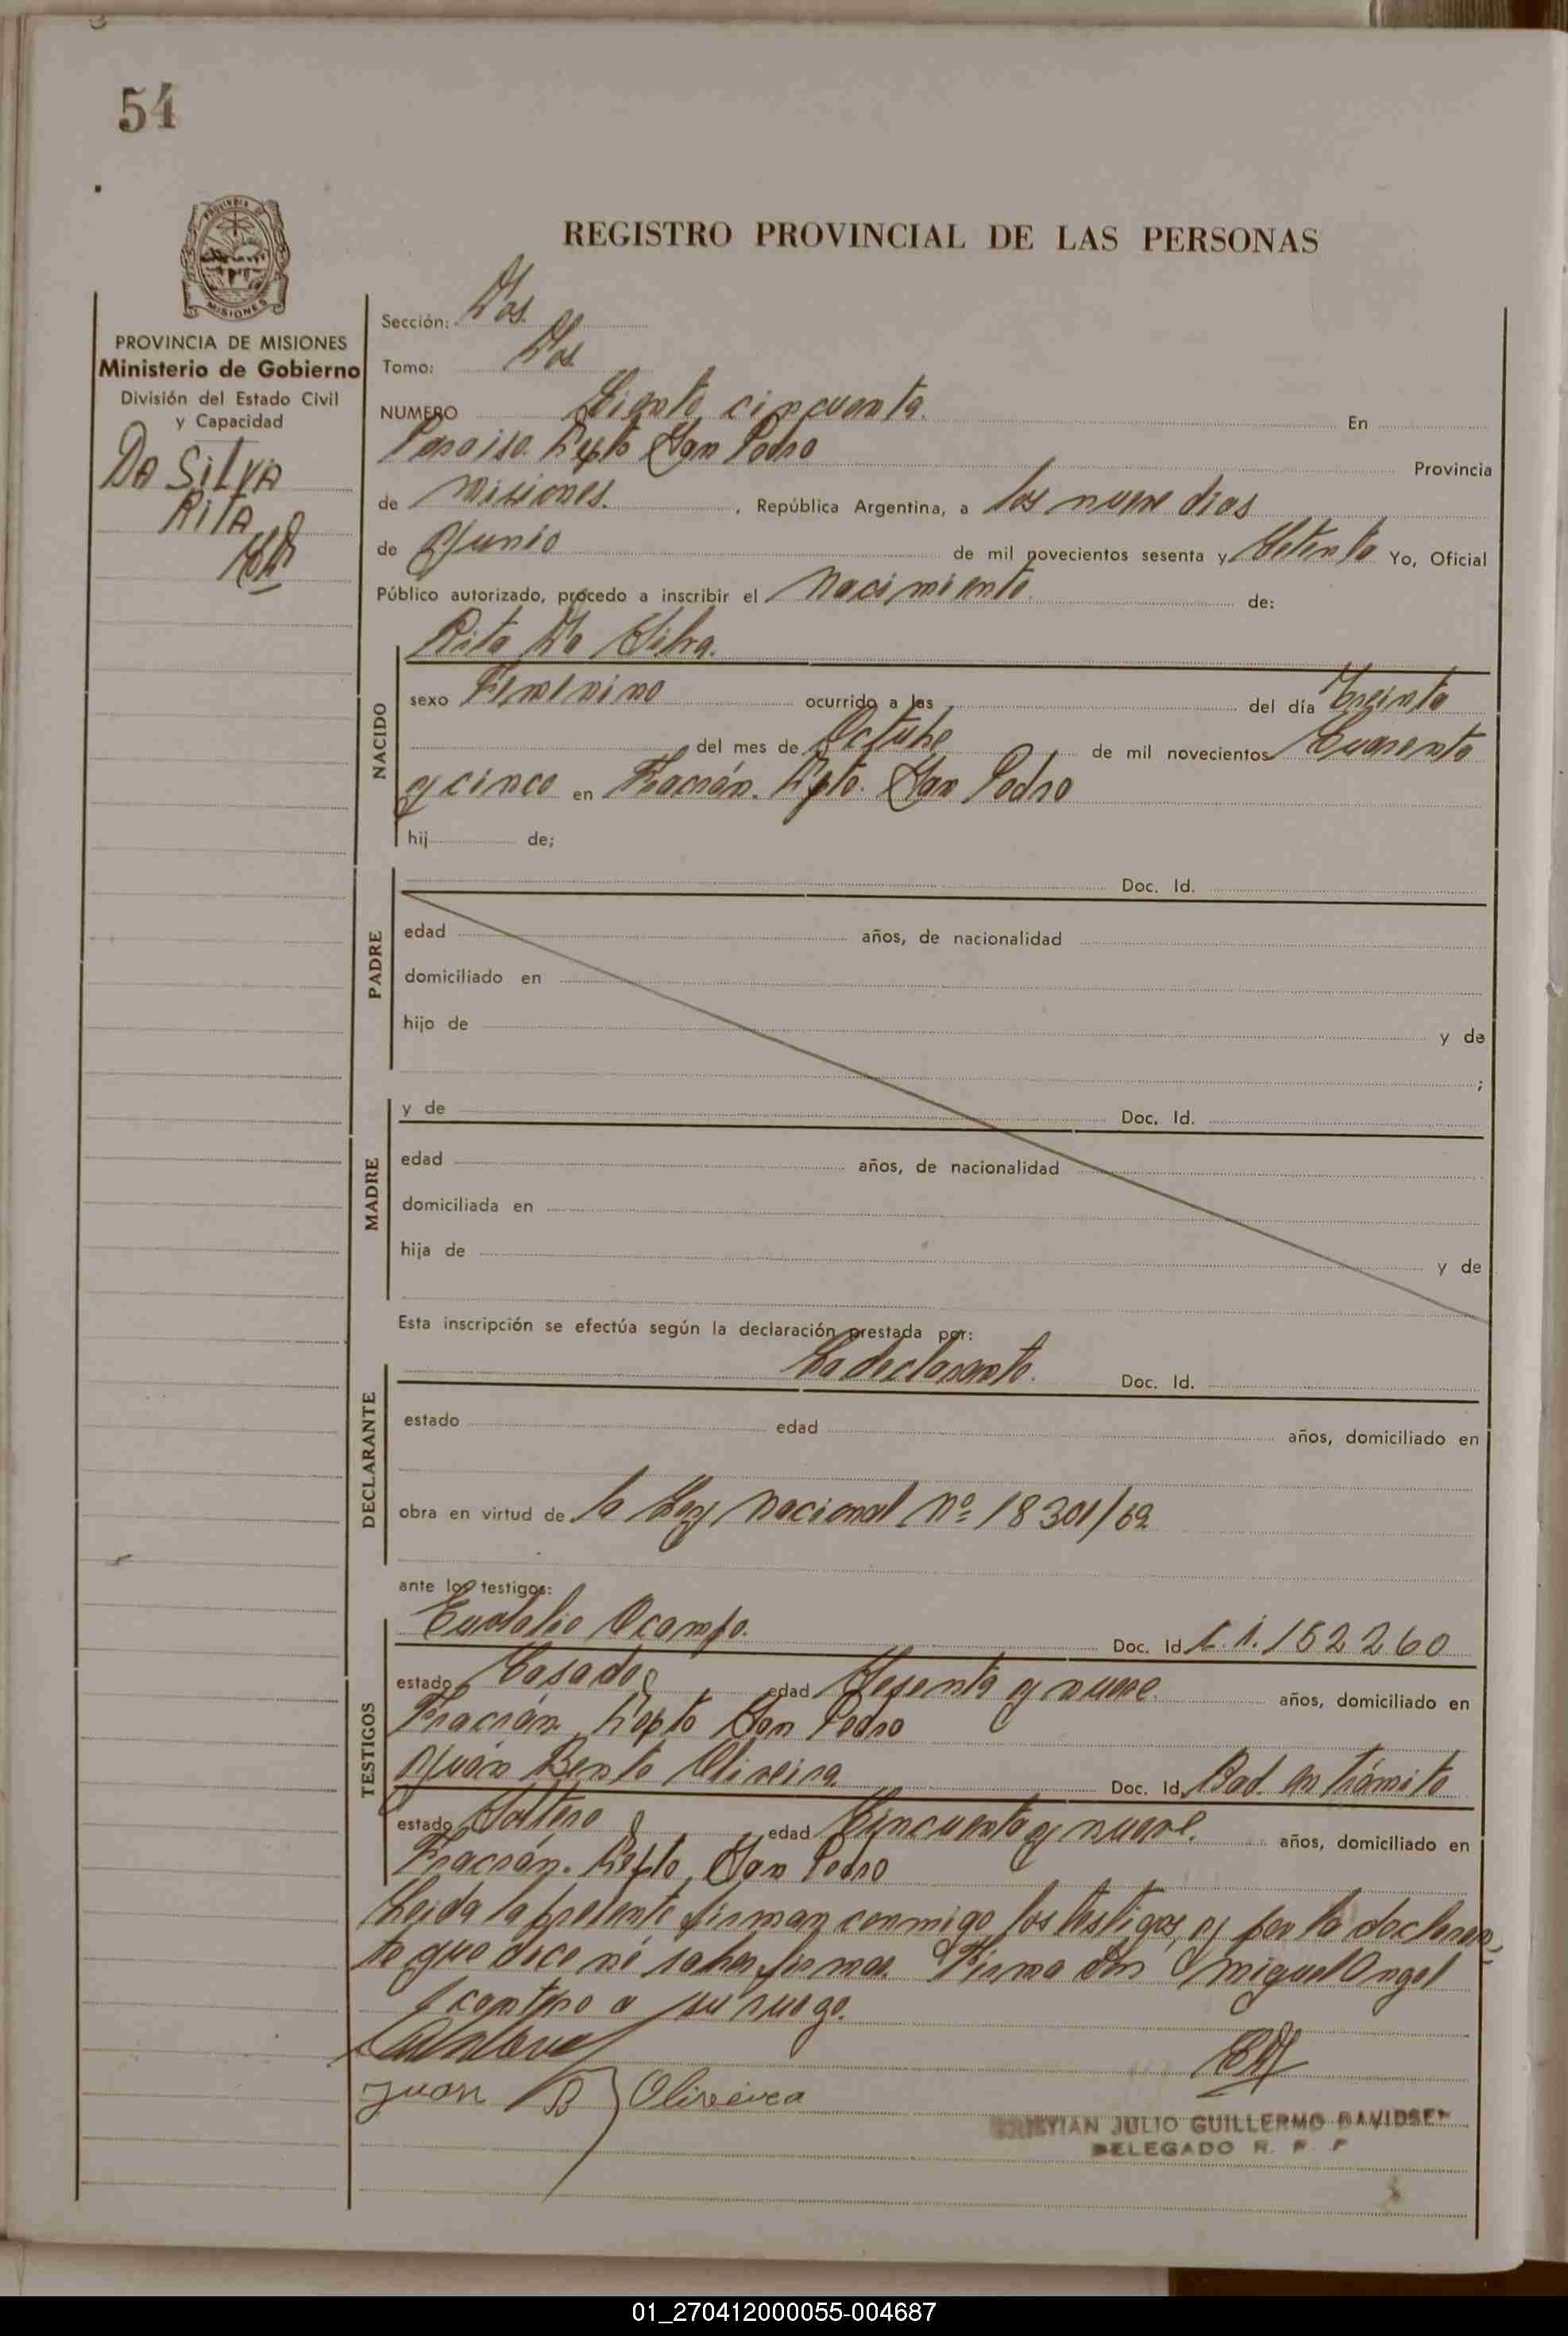 54
PROVINCIA DE
MISIONES
REGISTRO PROVINCIAL DE LAS PERSONAS
PROVINCIA DE MISIONES
Ministerio de Gobierno
División del Estado Civil
y Capacidad
DA SILVA
RITA
Sección: Dos
Tomo: Dos
NUMERO Ciento cincuenta. En
Paraiso. Dpto San Pedro Provincia
de Misiones. , República Argentina, a los nueve dias
de Junio de mil novecientos sesenta y Setenta Yo, Oficial
Público autorizado, procedo a inscribir el Nacimiento. de:
Rita Da Silva.
NACIDO
sexo Femenino ocurrido a las del día Treinta
del mes de Octubre de mil novecientos Cuarenta
y cinco en Fracrán. Dpto. San Pedro
hij de;
PADRE
Doc. Id.
edad años, de nacionalidad
domiciliado en
hijo de y de
;
MADRE
y de Doc. Id.
edad años, de nacionalidad
domiciliada en
hija de y de
Esta inscripción se efectúa según la declaración prestada por:
DECLARANTE
La declarante. Doc. Id.
estado edad años, domiciliado en
obra en virtud de la Ley Nacional Nº 18301/69
ante los testigos:
TESTIGOS
Eustolio Ocampo. Doc. Id C.I. 152260
estado Casado edad Sesenta y nueve años, domiciliado en
Fracrán, Dopto San Pedro
Juan Bento Oliveira Doc. Id. Rad. en trámite
estado Soltero edad Cincuenta y nueve. años, domiciliado en
Fracrán. Dopto, San Pedro
Leida la presente firman conmigo los testigos y por la declaran-
te que dice no saber firmar. Firma don Miguel Angel
a su ruego.
Juan B Oliveira
CRISTIAN JULIO GUILLERMO DAVIDSEN
DELEGADO R. P. P
01_270412000055-004687